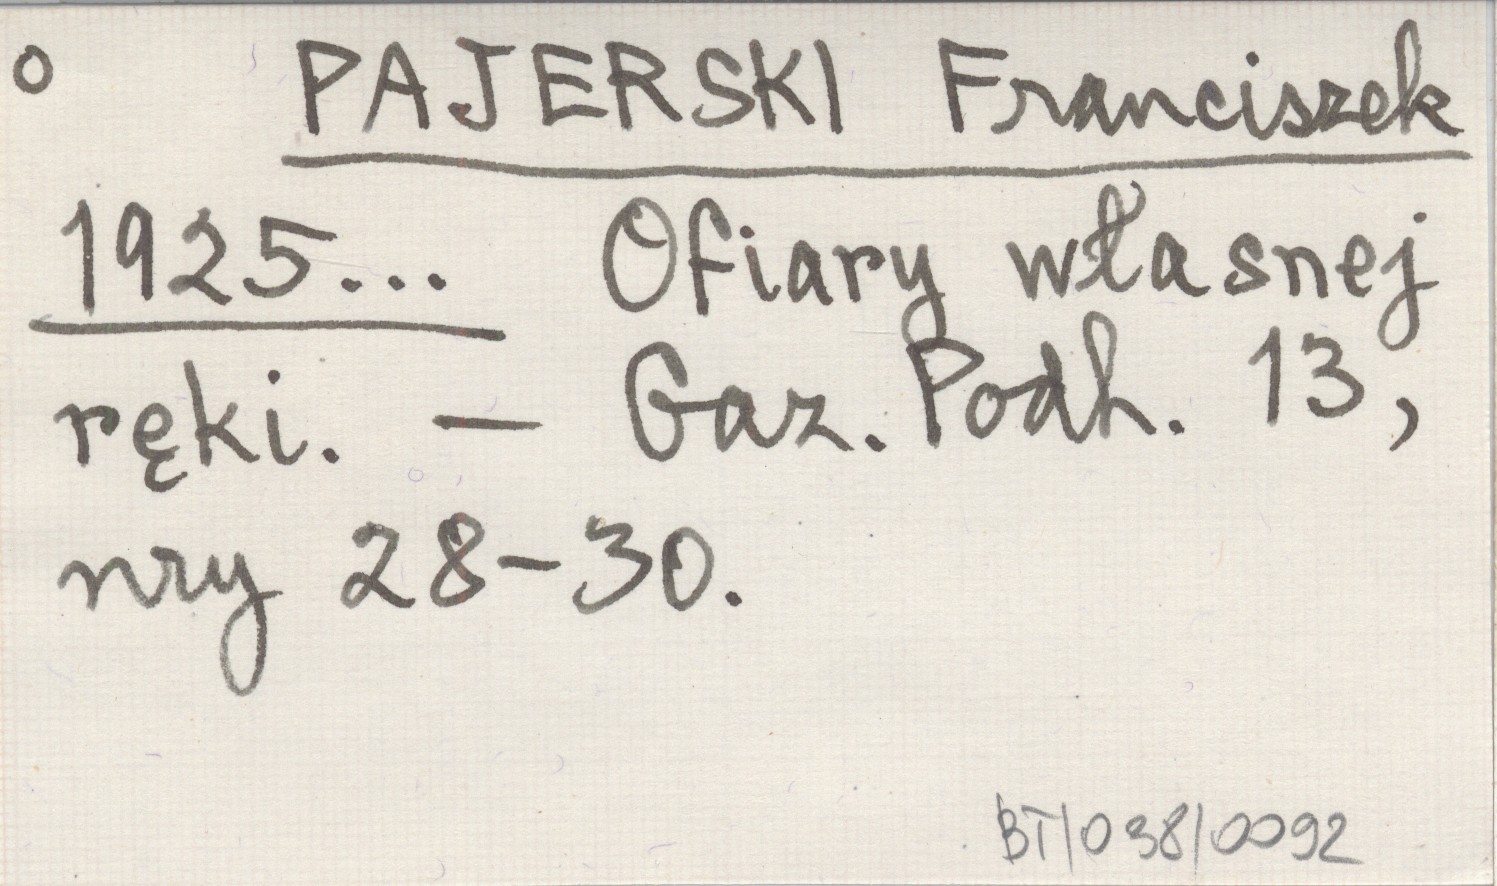 o PAJERSKI Franciszek
1925... Ofiary własnej
ręki. – Gaz. Podh. 13,
nry 28-30.
BT/038/0092